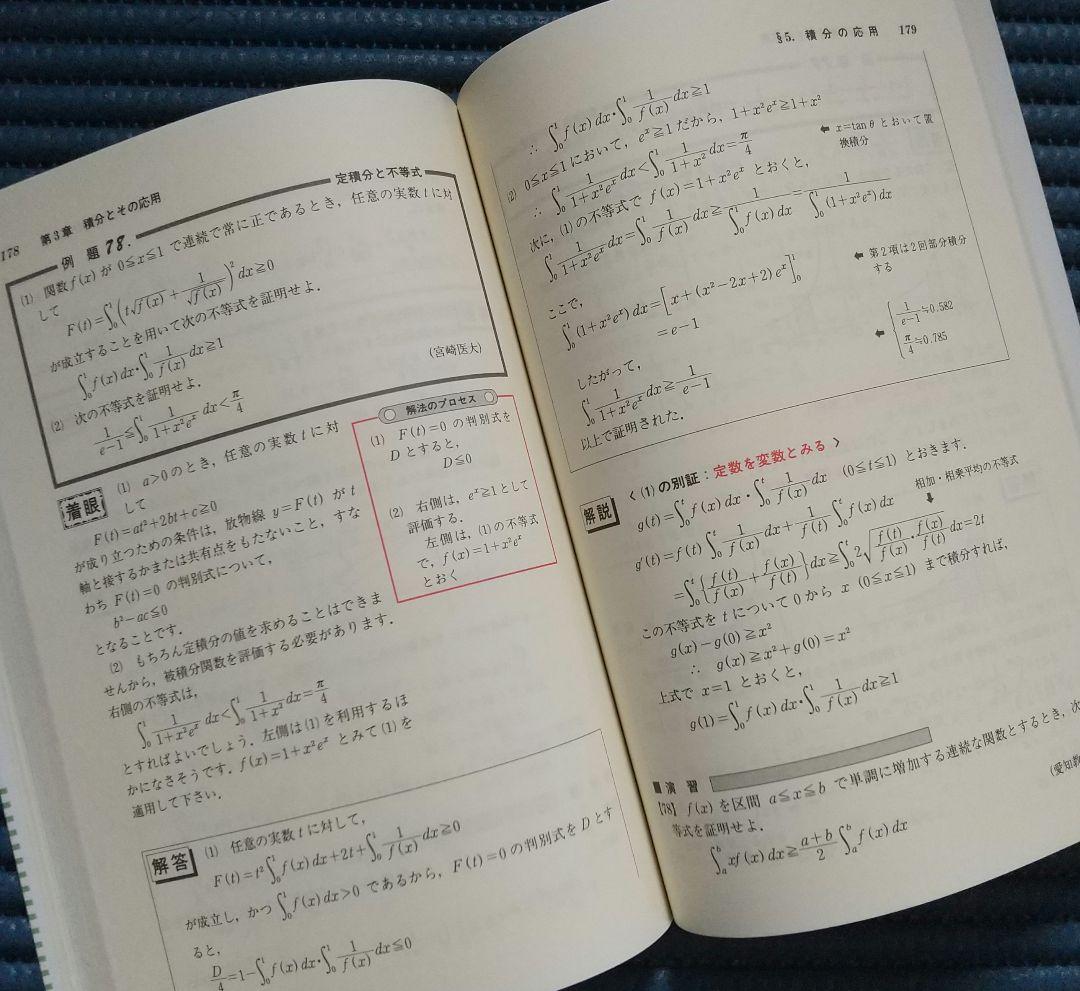 178 第3章 積分とその応用
例題 78. 定積分と不等式
(1) 関数 f(x) が 0≦x≦1 で連続で常に正であるとき，任意の実数 t に対
して
F(t)=∫₀¹(t√f(x) + 1/√f(x))² dx≧0
が成立することを用いて次の不等式を証明せよ．
∫₀¹f(x)dx・∫₀¹ 1/f(x) dx≧1
(2) 次の不等式を証明せよ．
1/(e−1)≦∫₀¹ 1/(1+x²eˣ) dx<π/4
(宮崎医大)
着眼
(1) a>0 のとき，任意の実数 t に対
して
F(t)=at²+2bt+c≧0
が成り立つための条件は，放物線 y=F(t) が t
軸と接するかまたは共有点をもたないこと，すな
わち F(t)=0 の判別式について，
b²−ac≦0
となることです．
(2) もちろん定積分の値を求めることはできま
せんから，被積分関数を評価する必要があります．
右側の不等式は，
∫₀¹ 1/(1+x²eˣ) dx<∫₀¹ 1/(1+x²) dx=π/4
とすればよいでしょう．左側は(1)を利用するほ
かになさそうです．f(x)=1+x²eˣ とみて(1)を
適用して下さい．
解法のプロセス
(1) F(t)=0 の判別式を
D とすると，
D≦0
(2) 右側は，eˣ≧1として
評価する．
左側は，(1)の不等式
で，f(x)=1+x²eˣ
とおく
解答
(1) 任意の実数 t に対して，
F(t)=t²∫₀¹f(x)dx+2t+∫₀¹ 1/f(x) dx≧0
が成立し，かつ ∫₀¹f(x)dx>0 であるから，F(t)=0 の判別式を D とす
ると，
D/4=1−∫₀¹f(x)dx・∫₀¹ 1/f(x) dx≦0
§5. 積分の応用 179
∴ ∫₀¹f(x)dx・∫₀¹ 1/f(x) dx≧1
(2) 0≦x≦1 において，eˣ≧1 だから，1+x²eˣ≧1+x²
∴ ∫₀¹ 1/(1+x²eˣ) dx<∫₀¹ 1/(1+x²) dx=π/4
⬅ x=tanθ とおいて置
換積分
次に，(1)の不等式で f(x)=1+x²eˣ とおくと，
∫₀¹ 1/(1+x²eˣ) dx=∫₀¹ 1/f(x) dx≧1/∫₀¹f(x)dx=1/∫₀¹(1+x²eˣ)dx
ここで，
⬅ 第2項は2回部分積分
する
∫₀¹(1+x²eˣ)dx=[x+(x²−2x+2)eˣ]₀¹
=e−1
⬅ { 1/(e−1)≒0.582
π/4≒0.785
したがって，
∫₀¹ 1/(1+x²eˣ) dx≧1/(e−1)
以上で証明された．
解説
〈(1)の別証：定数を変数とみる〉
g(t)=∫₀ᵗf(x)dx・∫₀ᵗ 1/f(x) dx (0≦t≦1) とおきます．
g′(t)=f(t)∫₀ᵗ 1/f(x) dx+1/f(t) ∫₀ᵗf(x)dx
相加・相乗平均の不等式
⬇
=∫₀ᵗ{f(t)/f(x)+f(x)/f(t)}dx≧∫₀ᵗ2√(f(t)/f(x)・f(x)/f(t)) dx=2t
この不等式を t について 0 から x (0≦x≦1) まで積分すれば，
g(x)−g(0)≧x²
∴ g(x)≧x²+g(0)=x²
上式で x=1 とおくと，
g(1)=∫₀¹f(x)dx・∫₀¹ 1/f(x) dx≧1
■演習
【78】 f(x) を区間 a≦x≦b で単調に増加する連続な関数とするとき，次
等式を証明せよ．
(愛知教
∫ₐᵇxf(x)dx≧(a+b)/2 ∫ₐᵇf(x)dx